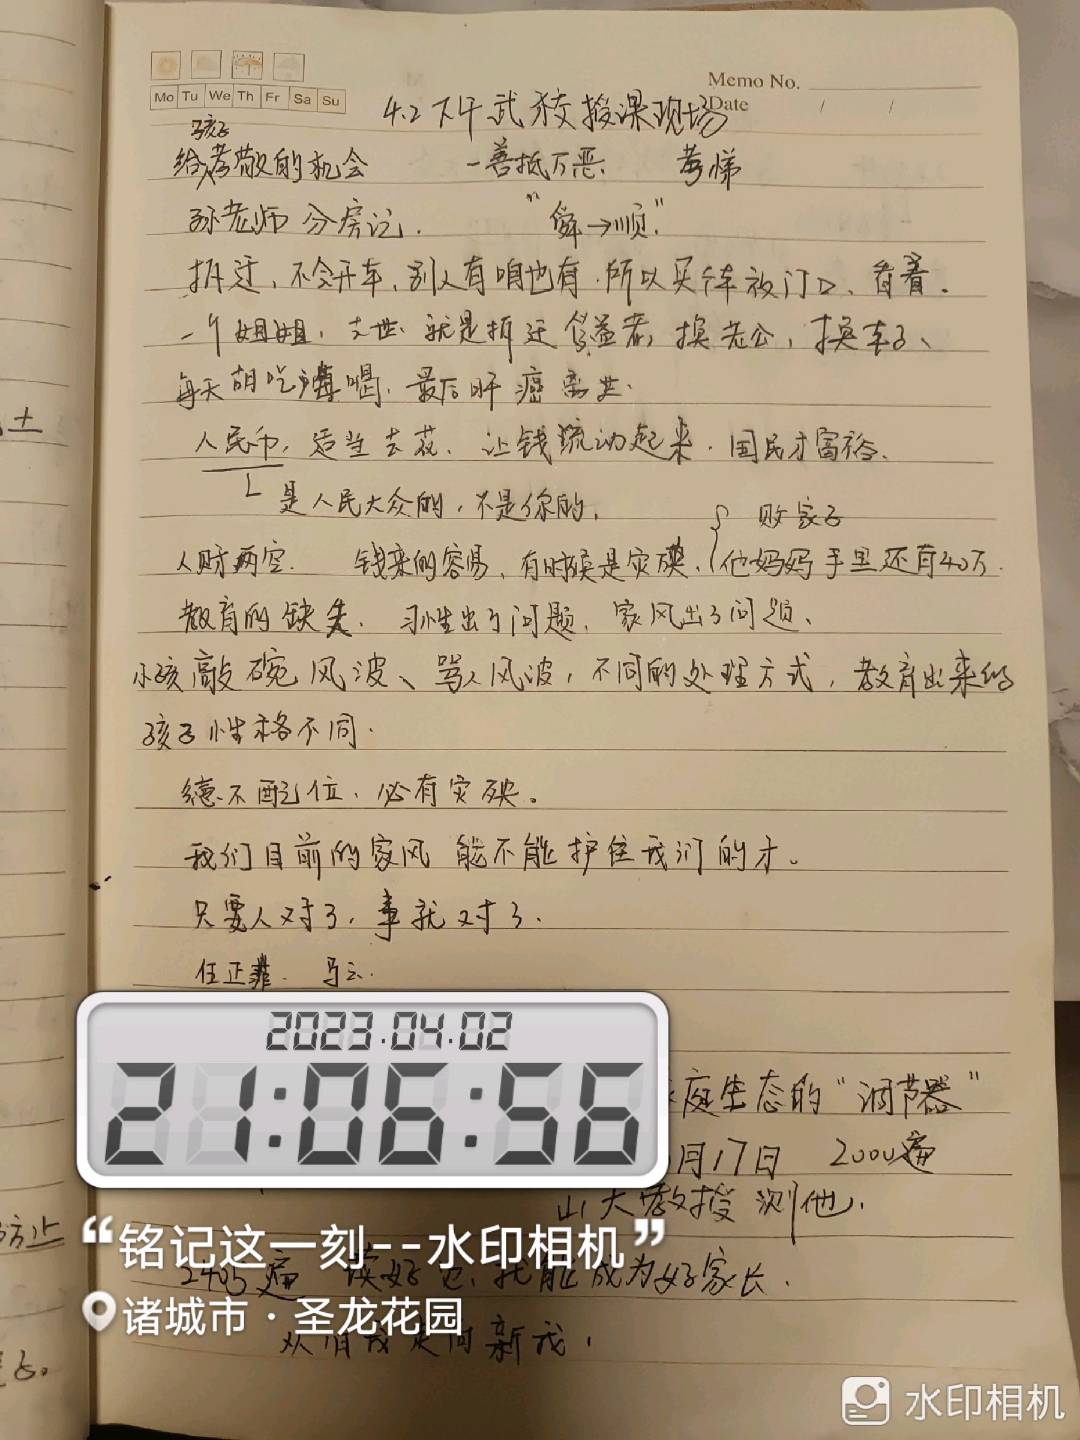 Memo No.
Mo Tu We Th Fr Sa Su
Date / /
4.2下午武校授课现场
孩子
给孝敬的机会 一善抵万恶. 孝悌
孙老师 分房记. "舜→顺."
拆迁,不会开车,别人有咱也有.所以买车放门口、看着.
一个姐姐. 去世. 就是拆迁受益者,换老公,换车子、
每天胡吃海喝.最后肝癌离世.
人民币,适当去花.让钱流动起来.国民才富裕.
是人民大众的,不是你的.
败家子
人财两空. 钱来的容易、有时候是灾殃.他妈妈手里还有40万.
教育的缺失. 习性出了问题、家风出了问题、
小孩敲碗风波、骂人风波,不同的处理方式,教育出来的
孩子性格不同.
德不配位.必有灾殃。
我们目前的家风 能不能护住我们的才。
只要人对了,事就对了.
任正非. 马云.
2023.04.02
21:06:56
庭生态的"调节器"
月17日 2000遍
山大教授测他.
“铭记这一刻--水印相机”
2405遍 读好 我能成为好家长.
诸城市·圣龙花园
从旧我走向新我.
水印相机